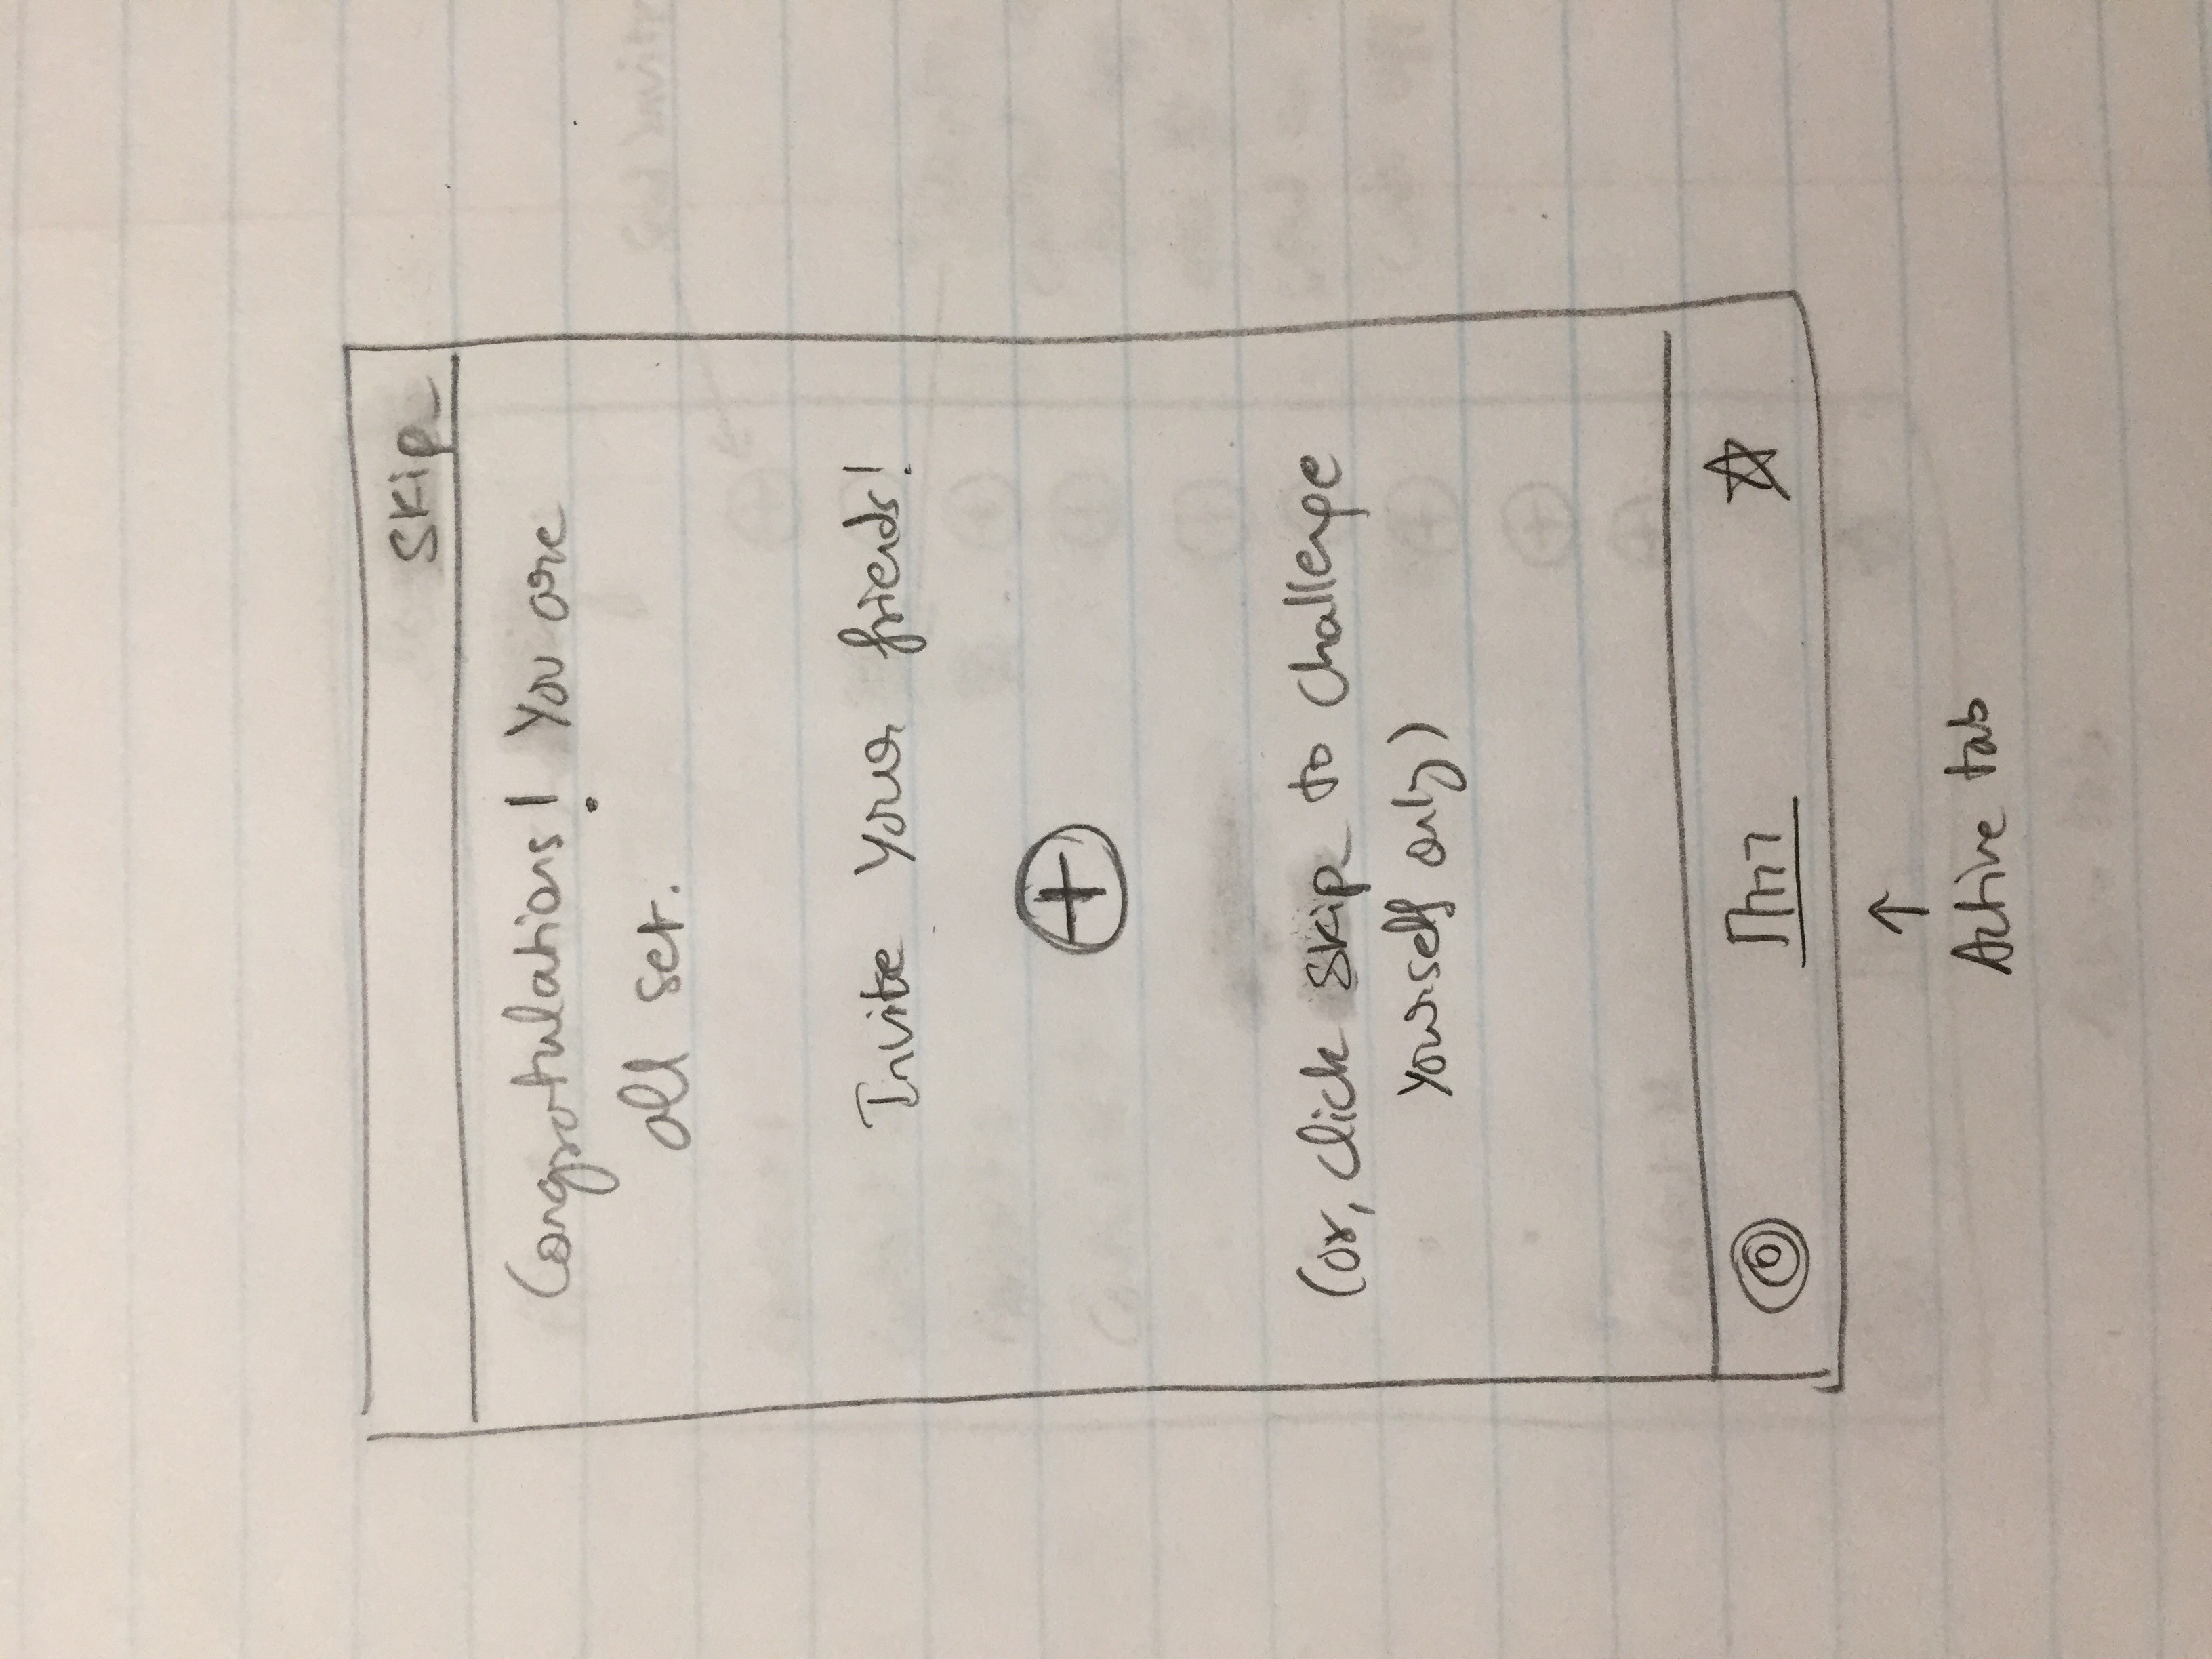 Skip
Congratulations! You are
all set.
Invite your friends!
(or, click skip to challenge
yourself only)
Active tab